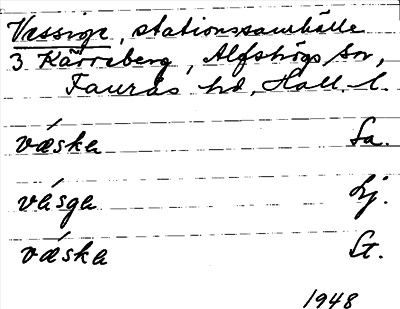 Vessige, stationssamhälle
3 Kärreberg, Alfshögs sn,
Faurås hd, Hall. l.
vǽska Sa.
vésga Lj.
vǽska St.
1948